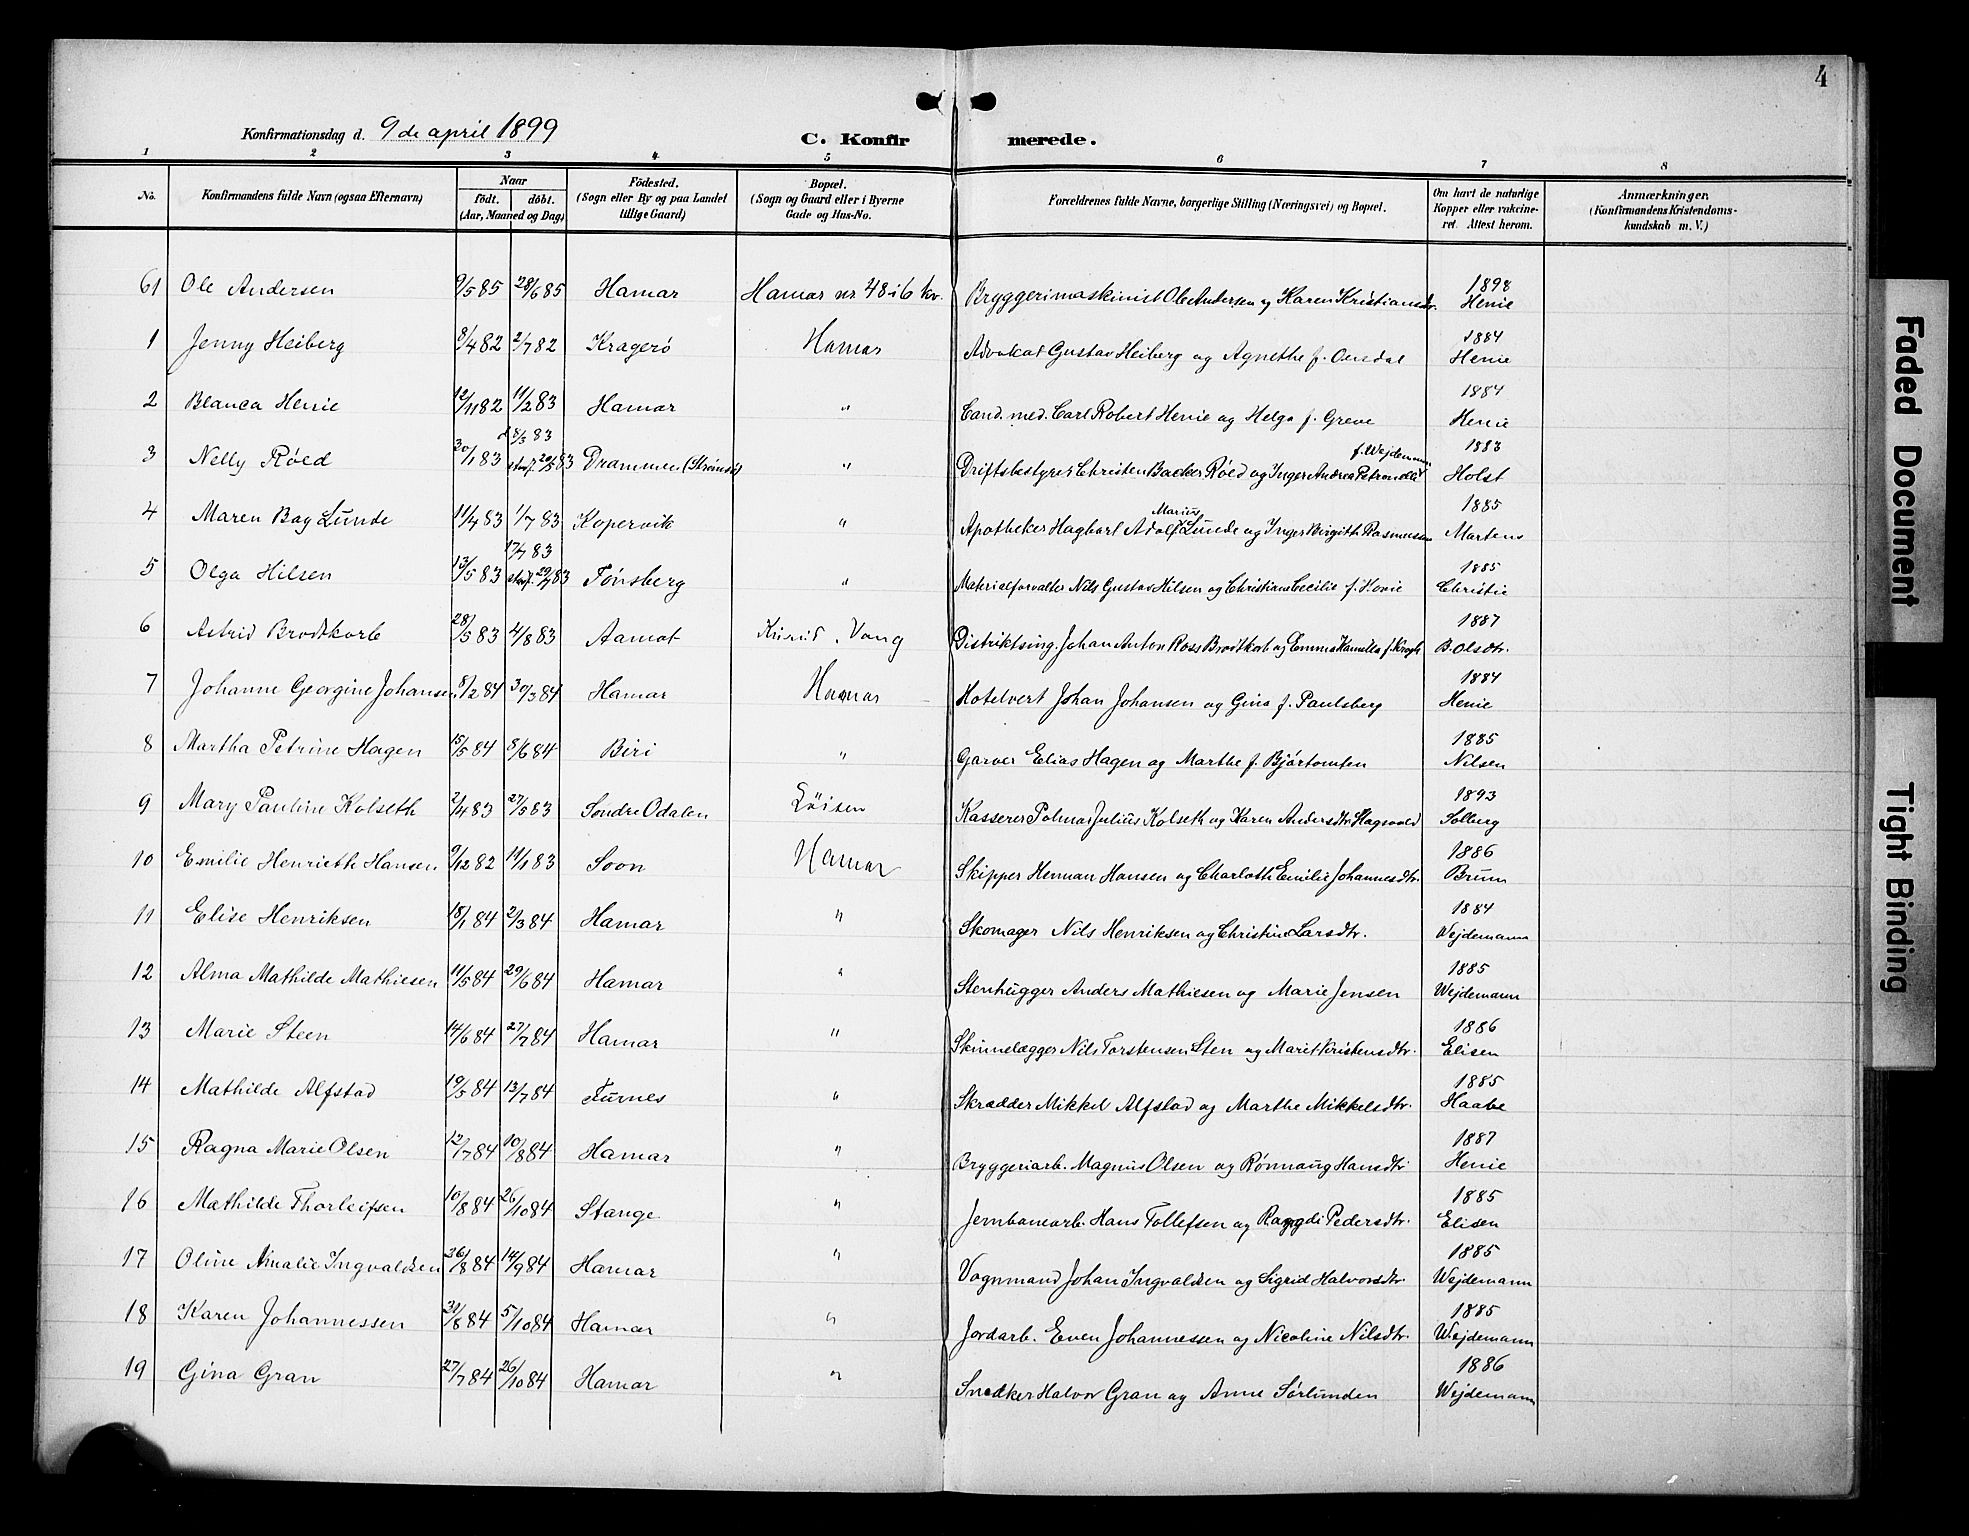 4
Konfirmationsdag d. 9de april 1899
C. Konfirmerede.
1 2 3 4 5 6 7 8
No. Konfirmandens fulde Navn (ogsaa Efternavn) Naar født. døbt. (Aar, Maaned og Dag) Fødested. (Sogn eller By og paa Landet tillige Gaard) Bopæl. (Sogn og Gaard eller i Byerne Gade og Hus-No. Forældrenes fulde Navne, borgerlige Stilling (Næringsvei) og Bopæl. Om havt de naturlige Kopper eller vakcineret. Attest herom. Anmærkninger. (Konfirmandens Kristendomskundskab m. V.)
61 Ole Andersen 9/5 85 28/6 85 Hamar Hamar nr 48 i 6 kv. Bryggerimaskinist Ole Andersen og Karen Kristiansdtr. 1898 Henie
1 Jenny Heiberg 8/4 82 2/7 82 Kragerø Hamar Advokat Gustav Heiberg og Agnethe f. 1884 Henie
2 Blanca Henie 12/11 82 11/2 83 Hamar " Cand. med. Carl Robert Henie og Helga f. Greve 1884 Henie
3 Nelly Røed 20/1 83 d 8/3 83 stadf. 20/5 83 Drammen (Strømsø) " Driftsbestyrer Christen Backer Røed og Inger Andrea Petronelle f. Wejdemann 1883 Holst
4 Maren Bay Lunde 11/4 83 1/7 83 Kopervik " Apotheker Hagbart Adolf Marius Lunde og Inger Birgithe Rasmussen 1885 Martens
5 Olga Hilsen 13/5 83 17/7 83 stadf. 29/7 83 Tønsberg " Materialforvalter Nils Gustav Hilsen og Christiane Cecilie f. 1885 Christie
6 Astrid Brodtkorb 28/5 83 4/8 83 Aamot Vang Distriktsing. Johan Anton Ross Brodtkorb og Emma Kamilla f. Krogh 1887 B. Olsdtr.
7 Johanne Georgine Johansen 8/2 84 30/3 84 Hamar Hamar Hotelvert Johan Johansen og Gina f. Paulsberg 1884 Henie
8 Martha Petrine Hagen 15/5 84 8/6 84 Biri " Garver Elias Hagen og Marthe f. Bjørtomten 1885 Nilsen
9 Mary Pauline Kolseth 2/4 83 27/5 83 Søndre Odalen Løiten Kasserer Polmar Julius Kolseth og Karen Andersdtr. Hagevold 1893 Solberg
10 Emilie Henriette Hansen 9/12 82 11/1 83 Soon Hamar Skipper Herman Hansen og Charlotte Emilie Johannesdtr. 1886 Bruun
11 Elise Henriksen 18/1 84 2/3 84 Hamar " Skomager Nils Henriksen og Christine Larsdtr. 1884 Wejdemann
12 Alma Mathilde Mathiesen 11/5 84 29/6 84 Hamar " Stenhugger Anders Mathiesen og Marie Jensen 1885 Wejdemann
13 Marie Steen 14/6 84 27/7 84 Hamar " Skinnelægger Nils Torstensen Sten og Marit Kristensdtr. 1886 Elisen
14 Mathilde Alfstad 19/5 84 13/7 84 Furnes " Skrædder Mikkel Alfstad og Marthe Mikkelsdtr. 1885 Haabe
15 Ragna Marie Olsen 12/7 84 10/8 84 Hamar " Bryggeriarb. Magnus Olsen og Rønnaug Hansdtr 1887 Henie
16 Mathilde Thorleifsen 10/8 84 26/10 84 Stange " Jernbanearb. Hans Tollefsen og Ragndi Pedersdtr. 1885 Elisen
17 Oline Amalie Ingvaldsen 26/8 84 14/9 84 Hamar " Vognmand Johan Ingvaldsen og Sigrid Halvorsdtr. 1885 Wejdemann
18 Karen Johannessen 31/8 84 5/10 84 Hamar " Jordarb. Even Johannessen og Nicoline Nilsdtr. 1885 Wejdemann
19 Gina Gran 27/7 84 26/10 84 Hamar " Snedker Halvor Gran og Anne Sørlunden 1886 Wejdemann
Faded Document
Tight Binding